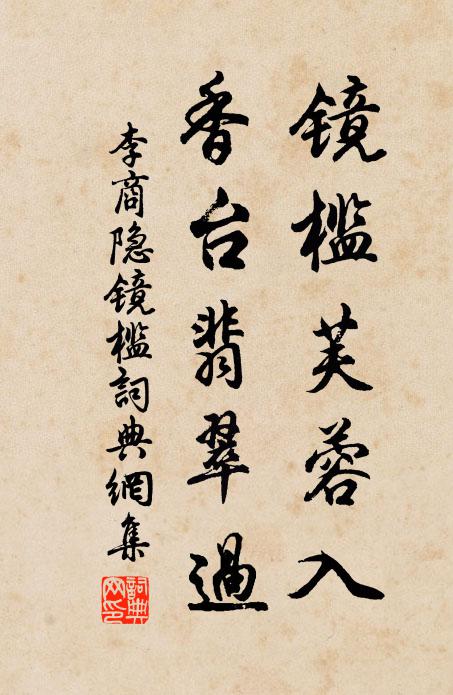 镜槛芙蓉入
香台翡翠過
李商隐镜槛詞典網集
詞典網印